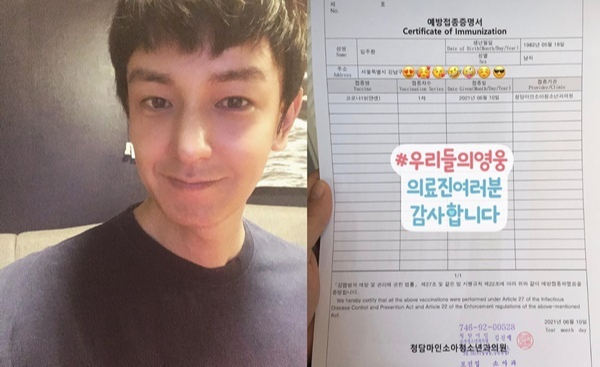 예방접종증명서
Certificate of Immunization
성명
Name
임주환
생년월일
Date of Birth(Month/Day/Year)
1982년 05월 18일
성별
Sex
남자
주소
Address
서울특별시 강남구
접종명
Vaccine
접종차수
Vaccination Series
접종일
Date Given(Month/Day/Year)
접종기관
Provider/Clinic
코로나19(얀센)
1차
2021년 06월 10일
청담마인소아청소년과의원
#우리들의영웅
의료진여러분
감사합니다
1/1
「감염병의 예방 및 관리에 관한 법률」 제27조 및 같은 법 시행규칙 제22조에 따라 위와 같이 예방접종하였음을
증명합니다.
We hereby certify that all the above vaccinations were performed under Article 27 of the Infectious
Disease Control and Prevention Act and Article 22 of the Enforcement regulations of the above-mentioned
Act.
2021년 06월 10일
Year month day
746-92-00528
청담마인소아청소년과의원